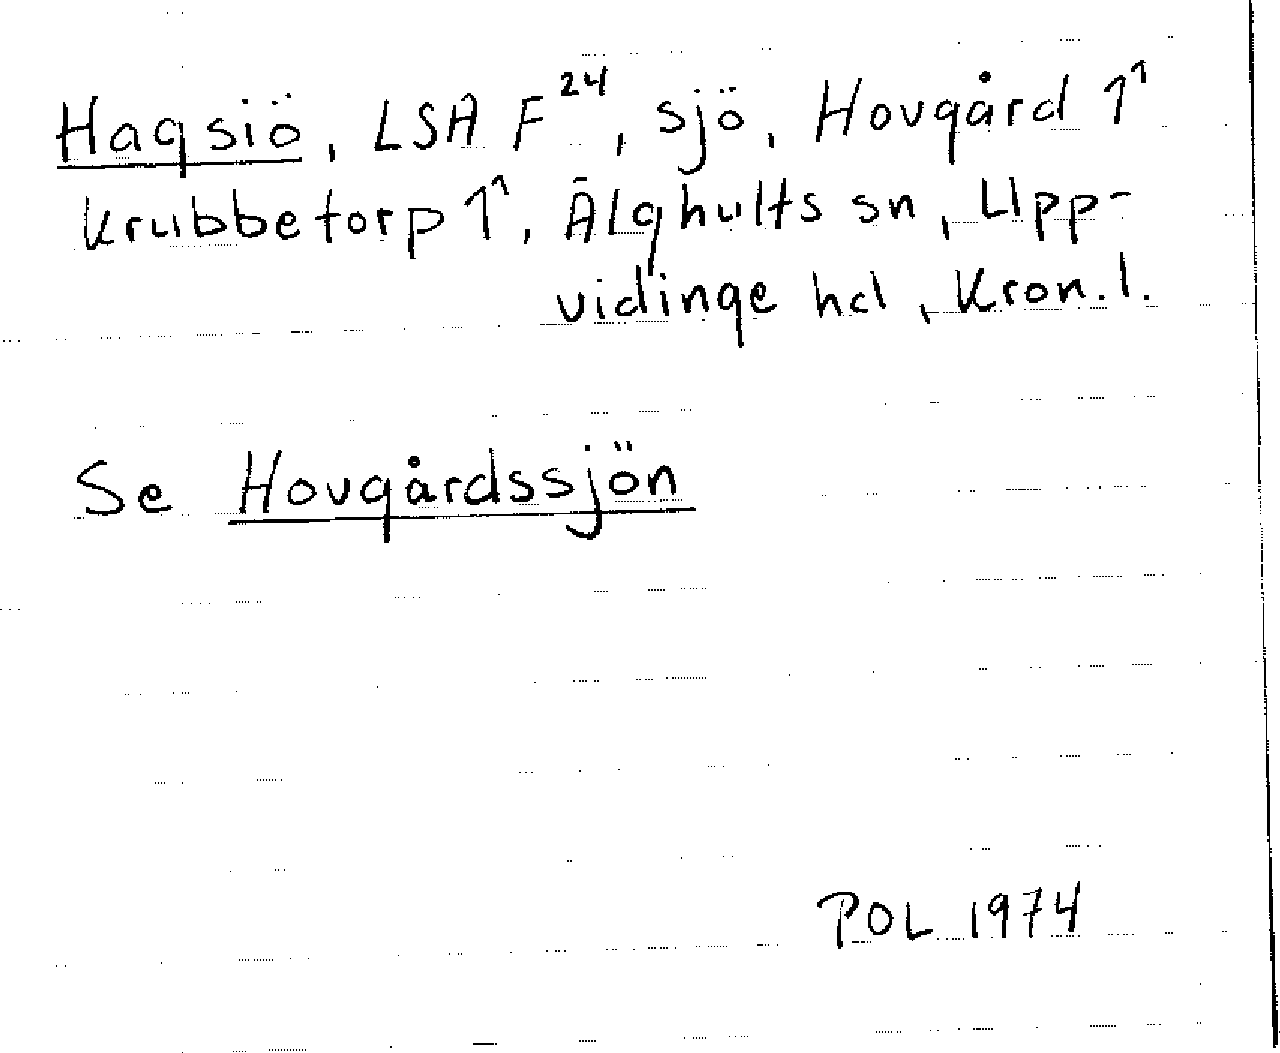 Hagsiö, LSA F²⁴, sjö, Hovgård 1¹
Krubbetorp 1¹, Älghults sn, Upp-
vidinge hd, Kron. l.
Se Hovgårdssjön
POL 1974